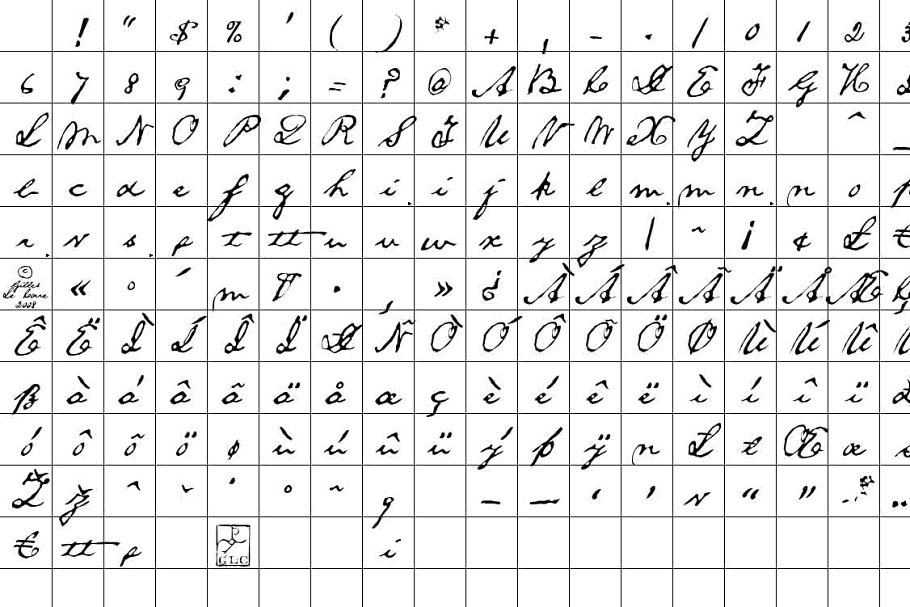 ! “ $ % ' ( ) * + , - . / 0 1 2 3
6 7 8 9 : ; = ? @ A B C D E F G H
L M N O P Q R S T U V W X Y Z ^ _
b c d e f g h i i j k l m m n n o p
r s t tt u v w x y z | ~ ¡ ¢ £ €
© Gilles Le Corre 2008 « ° ´ ¶ · ¸ » ¿ À Á Â Ã Ä Å Æ Ç
Ê Ë Ì Í Î Ï Ð Ñ Ò Ó Ô Õ Ö Ø Ù Ú Û
ß à á â ã ä å æ ç è é ê ë ì í î ï
ó ô õ ö ø ù ú û ü ý þ ÿ Ł ł Œ œ
Ž ž ˆ ˇ ˙ ˚ ˜ – — ‘ ’ “ ”
€ tt GLC i